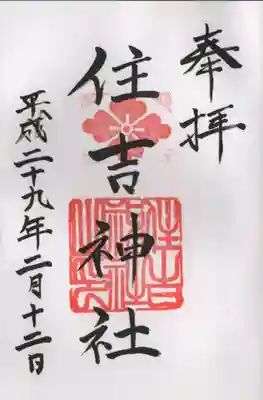 奉拝
住吉神社
平成二十九年二月十二日